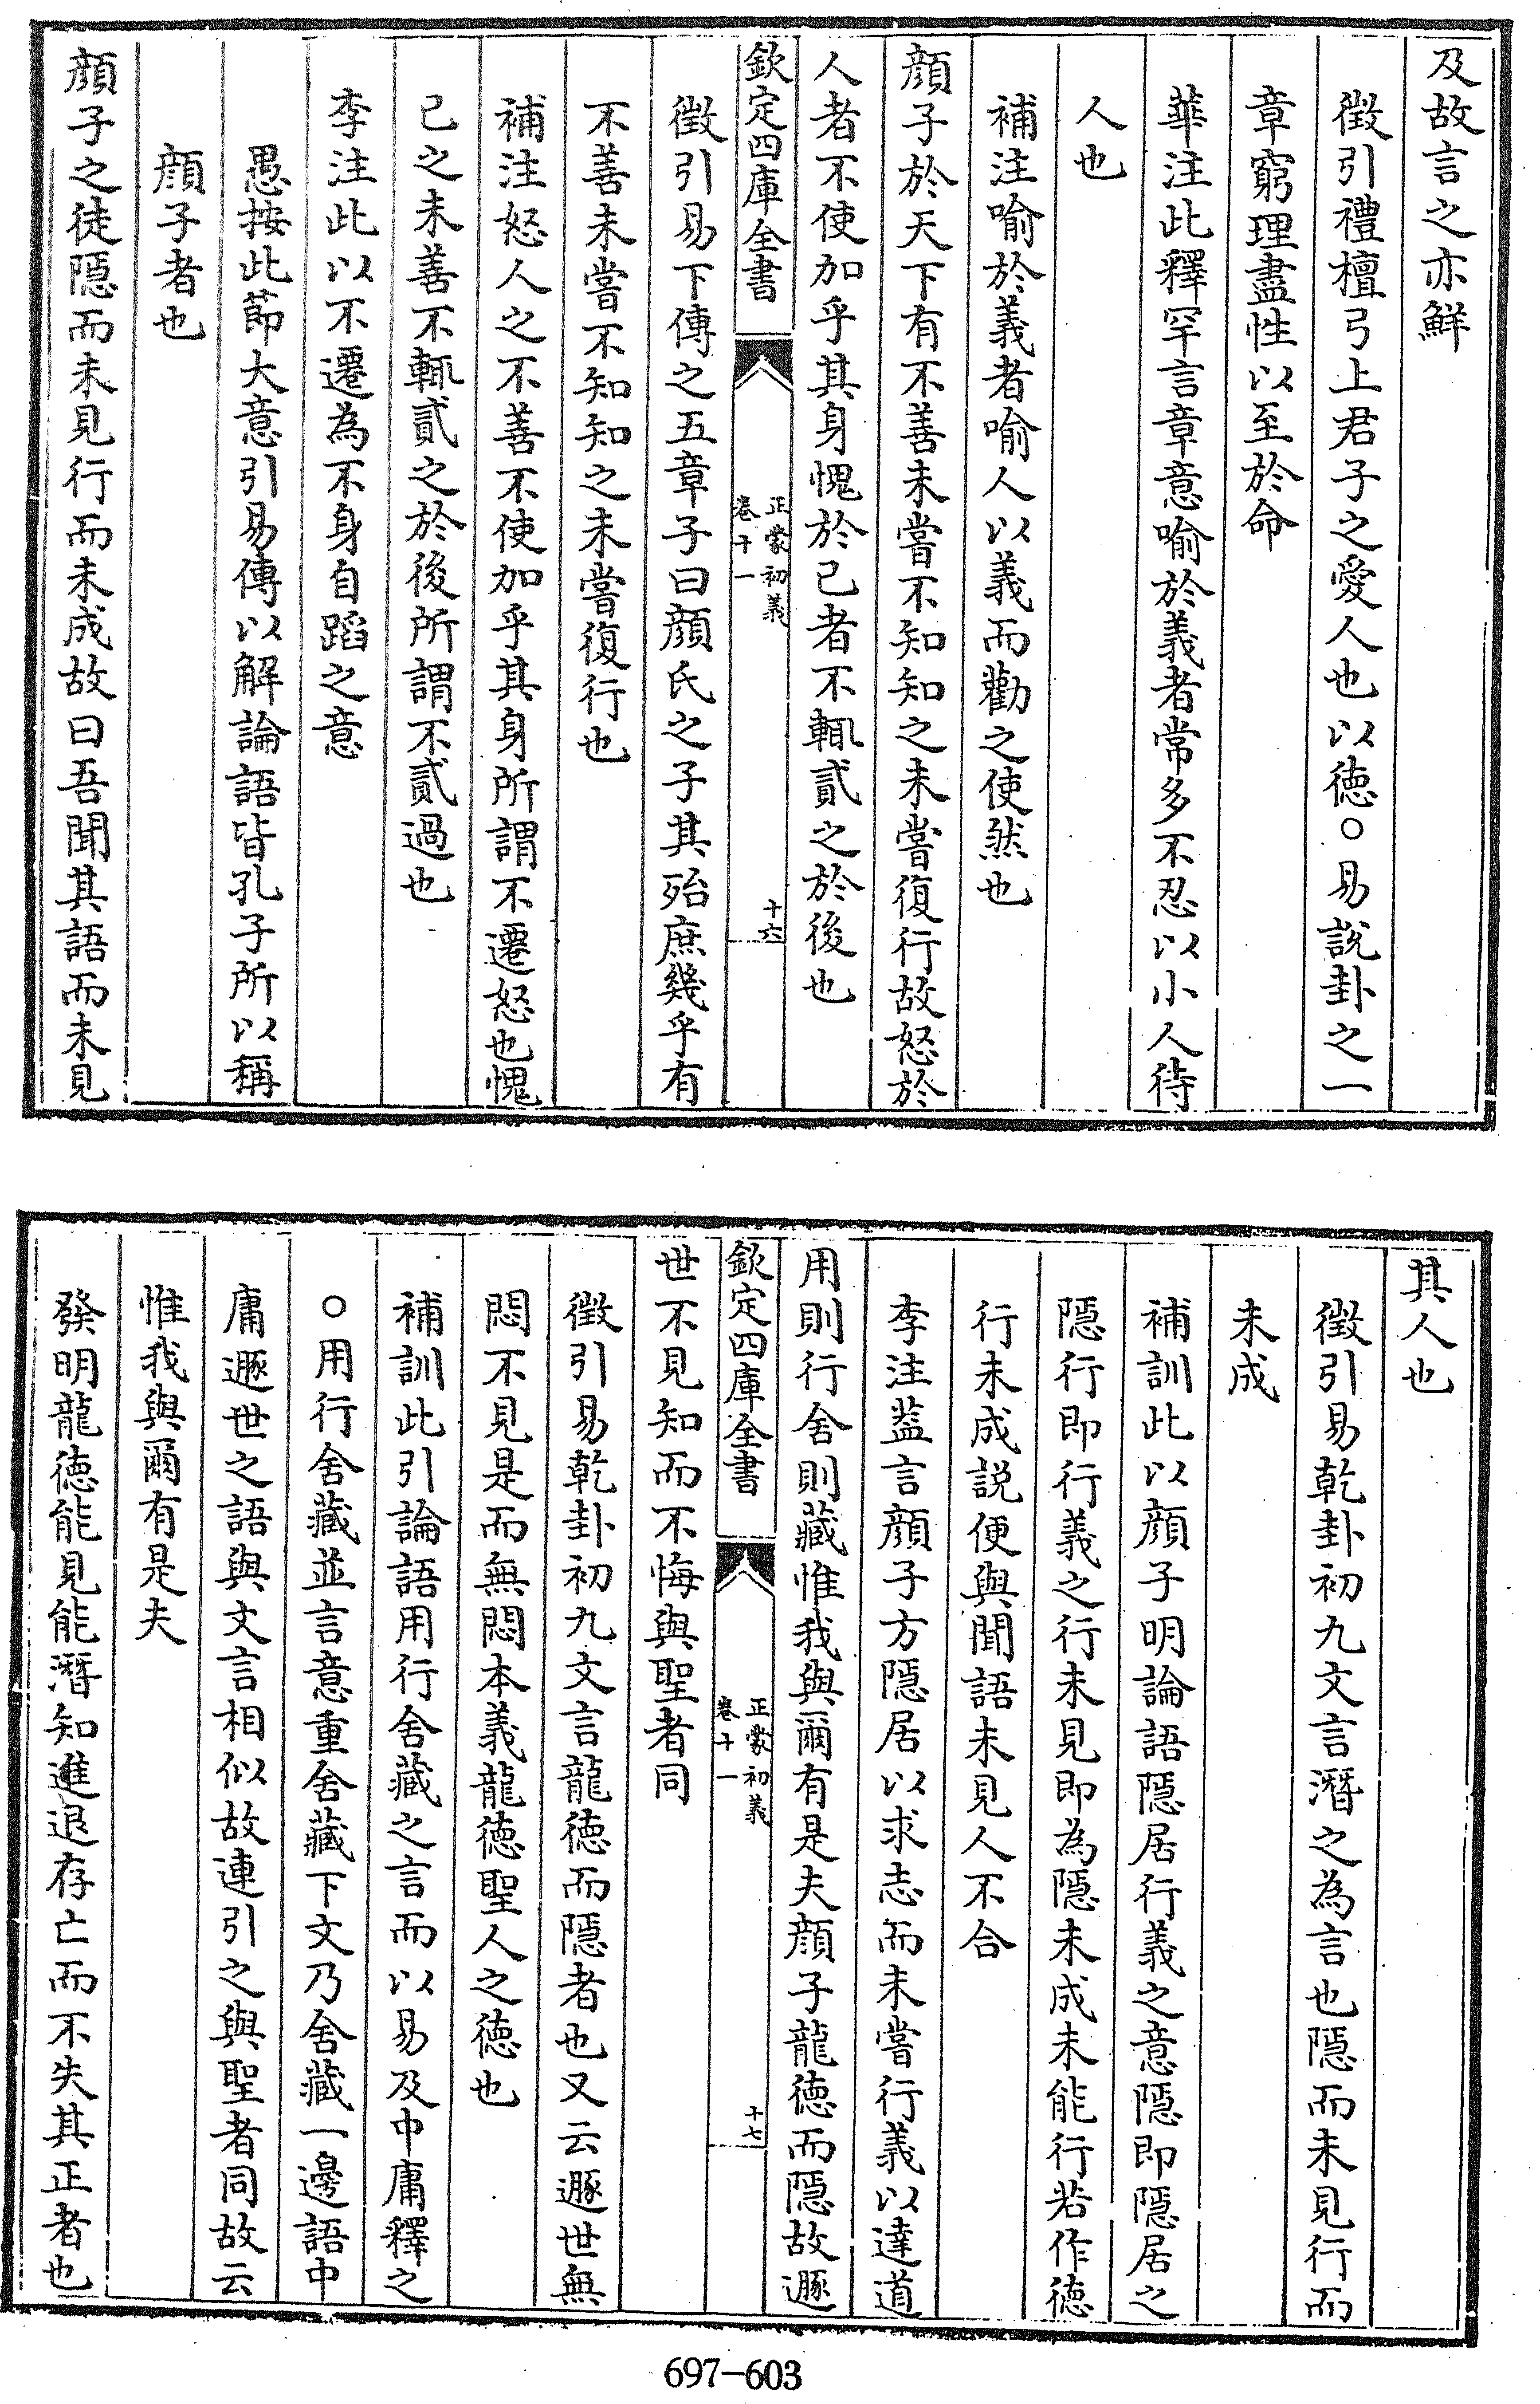 及故言之亦鮮
徵引禮檀弓上君子之愛人也以徳○易説卦之一
章窮理盡性以至於命
華注此釋罕言章意喻於義者常多不忍以小人待
人也
補注喻於義者喻人以義而勸之使然也
顔子於天下有不善未嘗不知知之未嘗復行故怒於
人者不使加乎其身愧於己者不輒貳之於後也
欽定四庫全書
正蒙初義
卷十一
十六
徵引易下傳之五章子曰顔氏之子其殆庶幾乎有
不善未嘗不知知之未嘗復行也
補注怒人之不善不使加乎其身所謂不遷怒也愧
已之未善不輒貳之於後所謂不貳過也
李注此以不遷為不身自蹈之意
愚按此節大意引易傳以解論語皆孔子所以稱
顔子者也
顔子之徒隱而未見行而未成故曰吾聞其語而未見
其人也
徵引易乾卦初九文言潛之為言也隱而未見行而
未成
補訓此以顔子明論語隱居行義之意隱即隱居之
隱行即行義之行未見即為隱未成未能行若作徳
行未成説便與聞語未見人不合
李注葢言顔子方隱居以求志而未嘗行義以達道
用則行舍則藏惟我與爾有是夫顔子龍徳而隱故遯
欽定四庫全書
正蒙初義
卷十一
十七
世不見知而不悔與聖者同
徵引易乾卦初九文言龍徳而隱者也又云遯世無
悶不見是而無悶本義龍徳聖人之徳也
補訓此引論語用行舍藏之言而以易及中庸釋之
○用行舍藏並言意重舍藏下文乃舍藏一邊語中
庸遯世之語與文言相似故連引之與聖者同故云
惟我與爾有是夫
發明龍徳能見能潛知進退存亡而不失其正者也
697-603